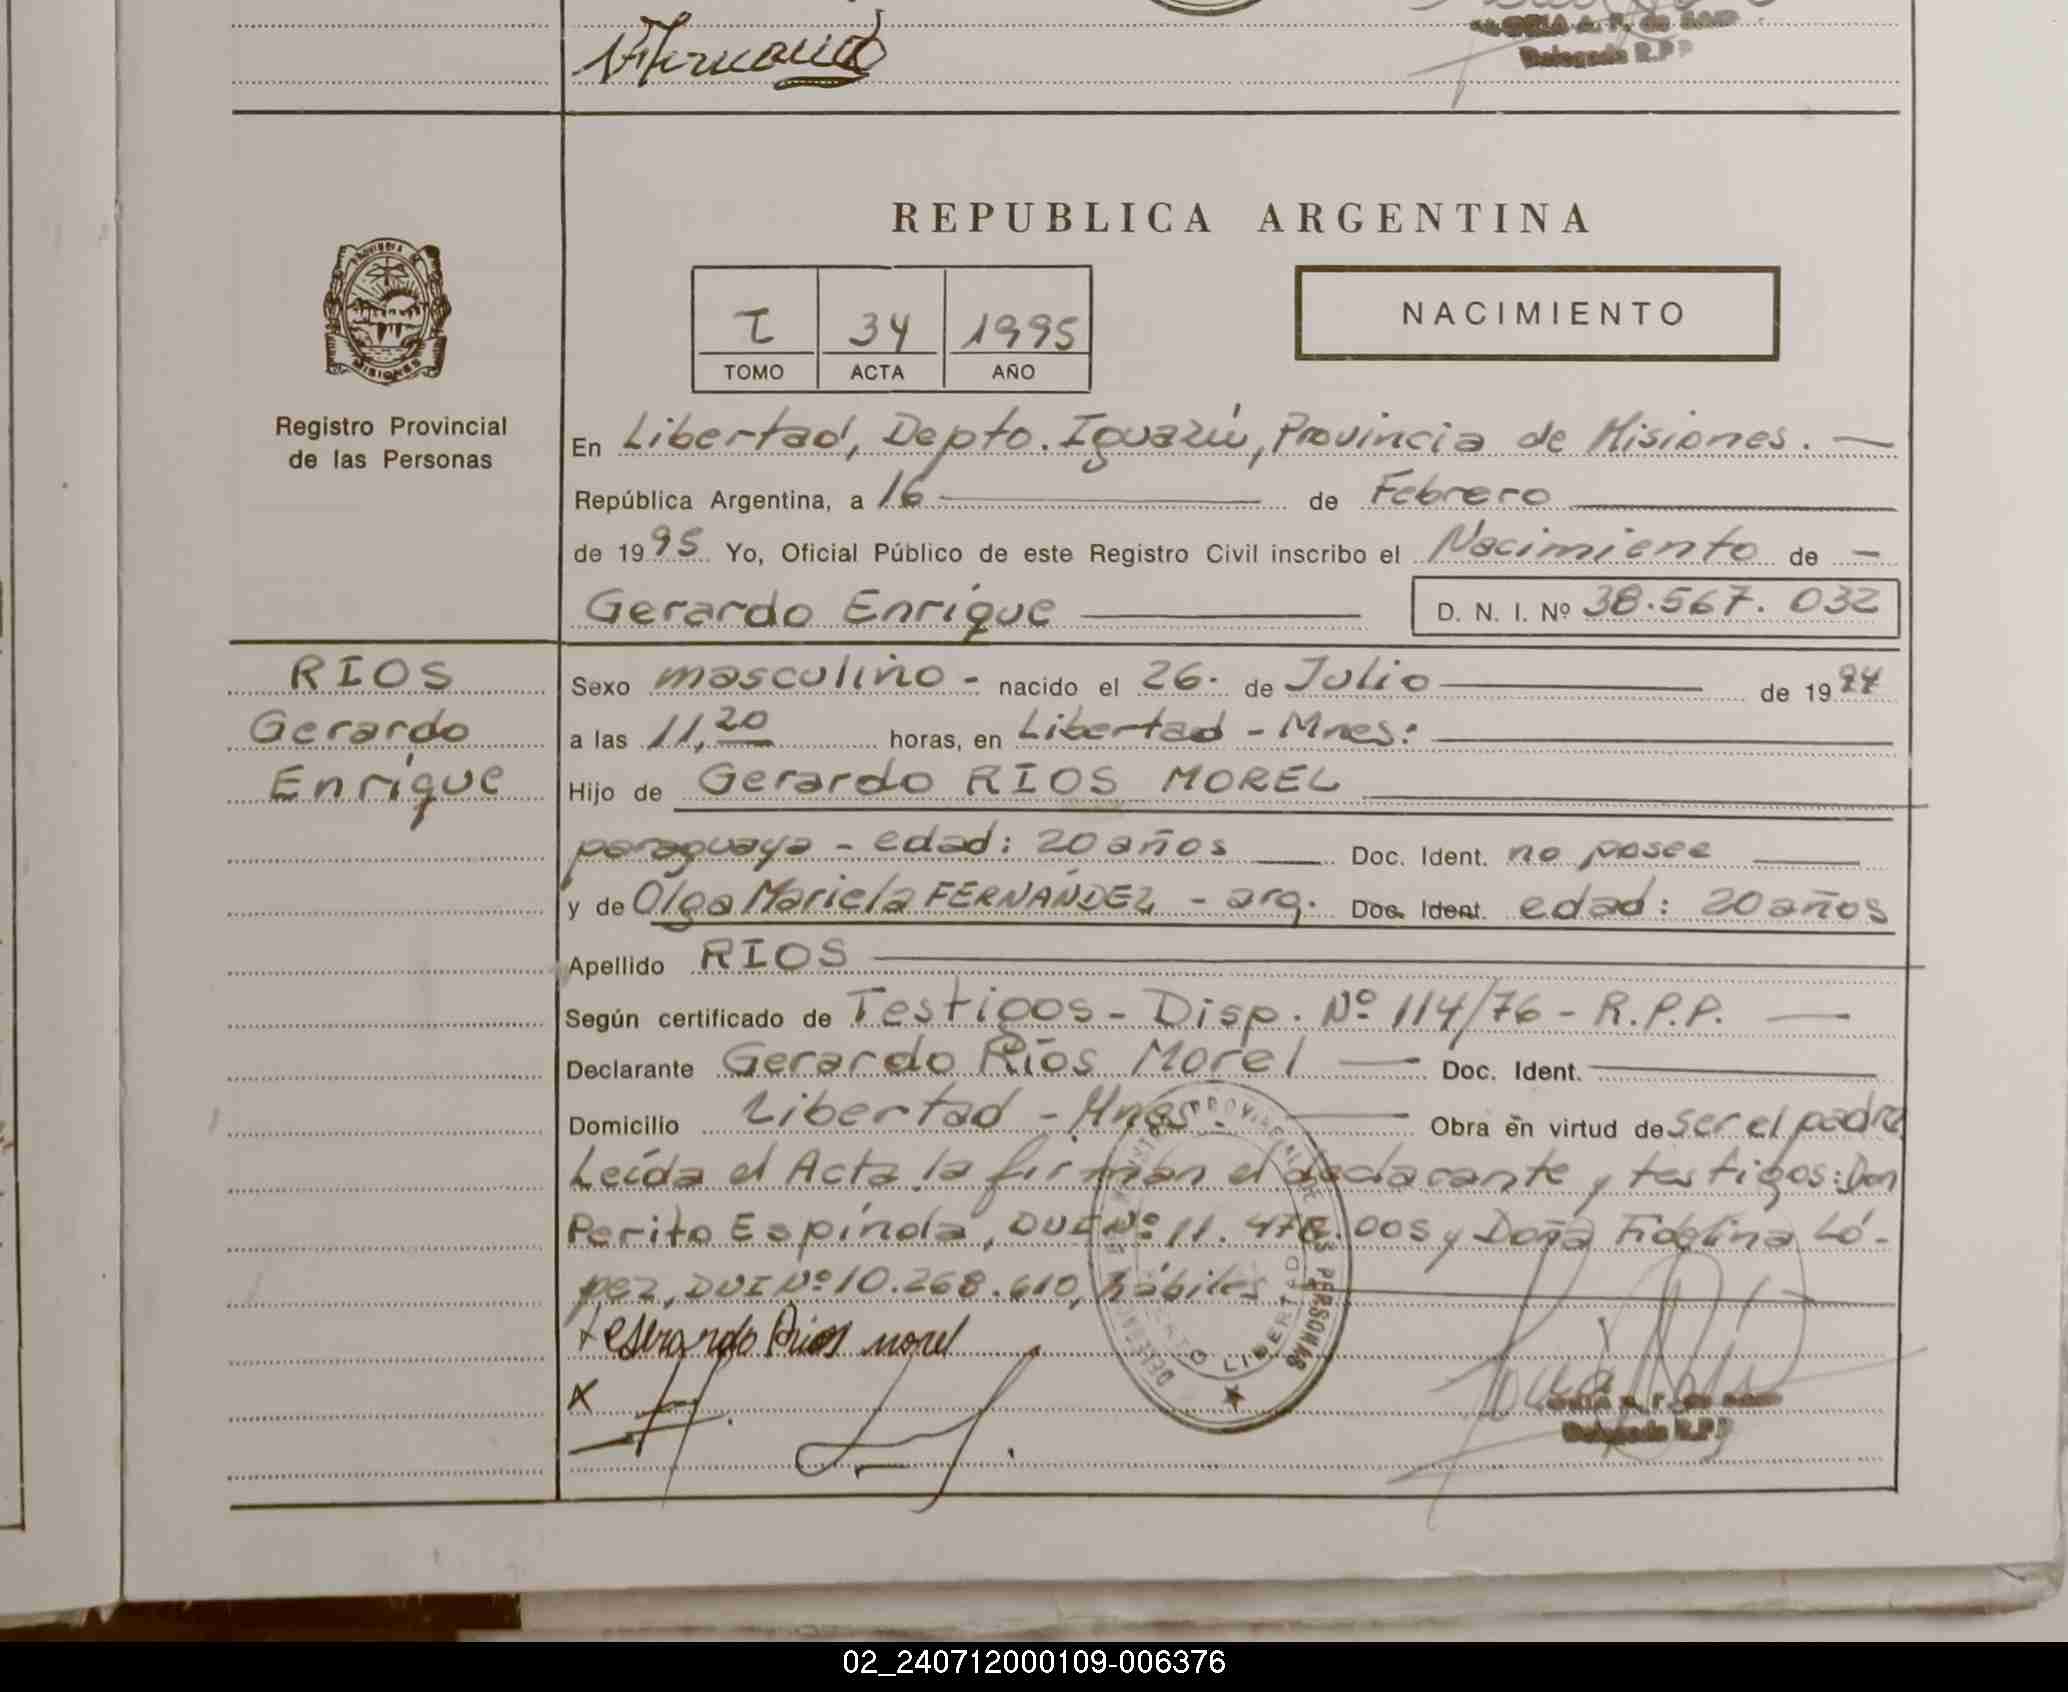 Delegada R.P.P
REPUBLICA ARGENTINA
PROVINCIA DE
MISIONES
I 34 1995
TOMO ACTA AÑO
NACIMIENTO
Registro Provincial
de las Personas
En Libertad, Depto. Iguazú, Provincia de Misiones. —
República Argentina, a 16 — de Febrero —
de 1995 Yo, Oficial Público de este Registro Civil inscribo el Nacimiento de —
Gerardo Enrique — D. N. I. Nº 38.567.032
RIOS
Gerardo
Enrique
Sexo masculino - nacido el 26. de Julio — de 1994
a las 11,20 horas, en Libertad - Mnes: —
Hijo de Gerardo RIOS MOREL —
paraguaya - edad: 20 años — Doc. Ident. no posee —
y de Olga Mariela FERNÁNDEZ - arg. Doc. Ident. edad: 20 años
Apellido RIOS —
Según certificado de Testigos - Disp. Nº 114/76 - R.P.P. —
Declarante Gerardo Ríos Morel — Doc. Ident. —
Domicilio Libertad - Mnes. — Obra en virtud de ser el padre
Leída el Acta la firman el declarante y testigos: Don
Perito Espíndola, DUI Nº 11.476.005 y Doña Fidelina Ló-
pez, DUI Nº 10.268.610, hábiles —
x Gerardo Rios morel
X
LIBERTAD
PERSONAS
Delegada R.P.P
02_240712000109-006376